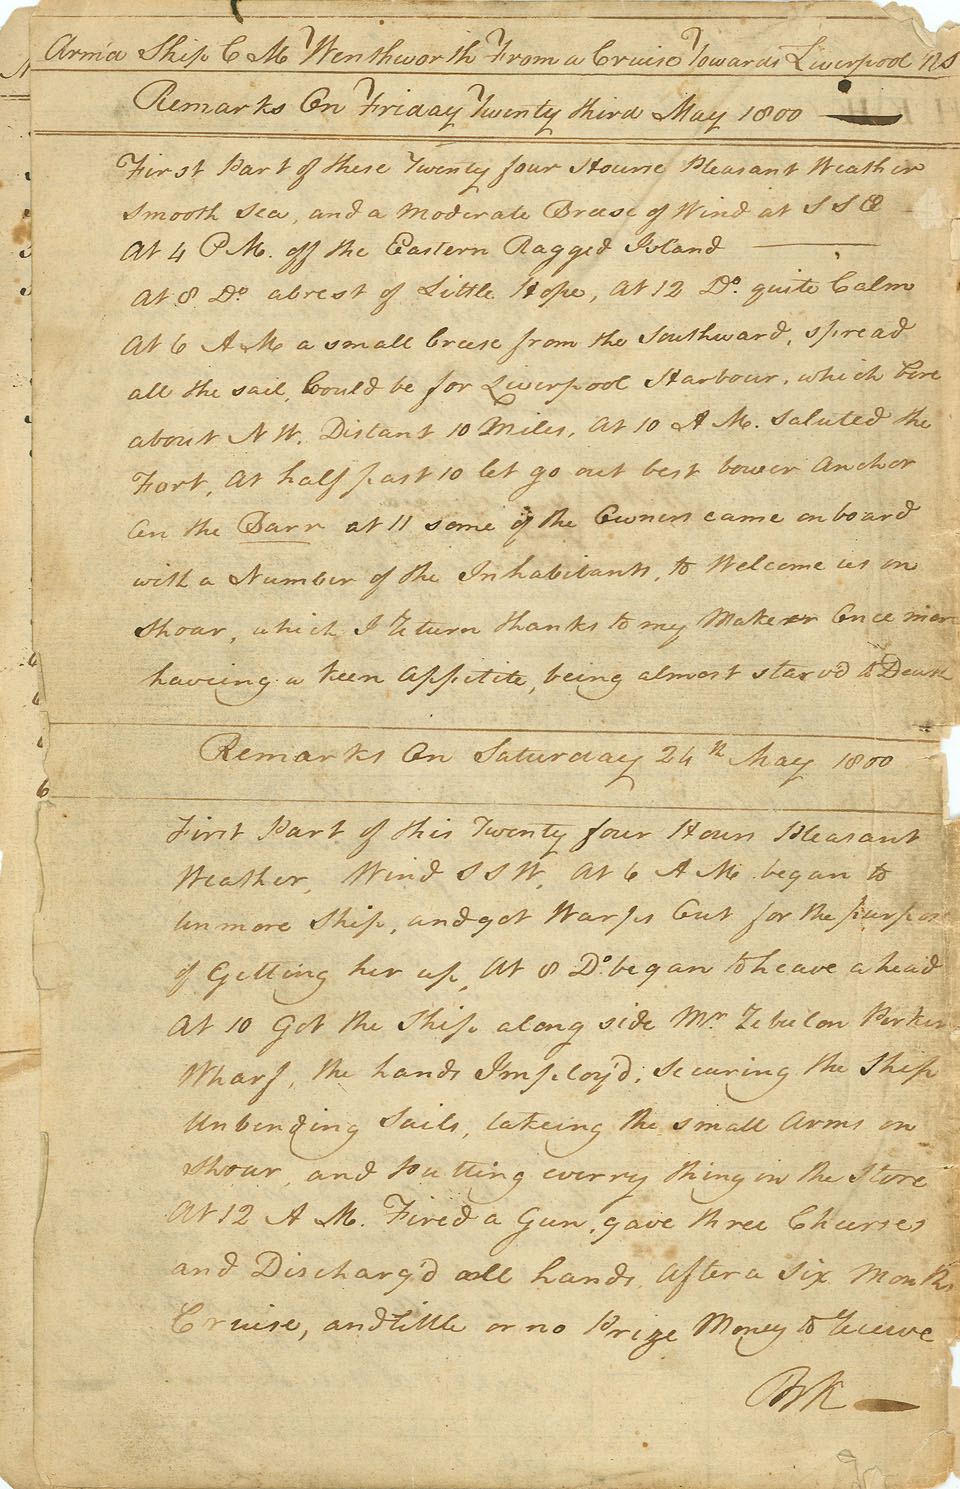 Arm'd Ship C M Wenthworth From a Cruise Towards Liverpool NS
Remarks On Friday Twenty third May 1800
First Part of these Twenty four Hours Pleasant Weather
Smooth Sea, and a Moderate Breese of Wind at S S E
At 4 P M. off the Eastern Ragged Island
At 8 Do. abrest of Little Hope, At 12 Do. quite Calm
At 6 A M a small breese from the Southward, spread
all the sail, Could be for Liverpool Harbour, which bore
about N W. Distant 10 Miles, At 10 A M. Saluted the
Fort, At half past 10 let go out best bower Anchor
On the Barr at 11 some of the Owners came onboard
with a Number of the Inhabitants, to Welcome us on
Shoar, which I Return thanks to my Maker Once more
haveing a keen Appitite, being almost starv'd to Death
Remarks On Saturday 24th May 1800
First Part of this Twenty four Hours Pleasant
Weather, Wind S S W, At 6 A M began to
Unmore Ship, and got Warps Out for the purpose
of Getting her up, At 8 Do. began to heave ahead
At 10 Got the Ship along side Mr Zebulon Perkins
Wharf, the hands Imploy'd, Securing the Ship
Unbending Sails, takeing the small Arms on
Shoar, and Putting everry thing in the Store
At 12 A M. Fired a Gun, gave three Cheerses
and Discharg'd all hands, after a Six Months
Cruise, and little or no Prize Money to Receive